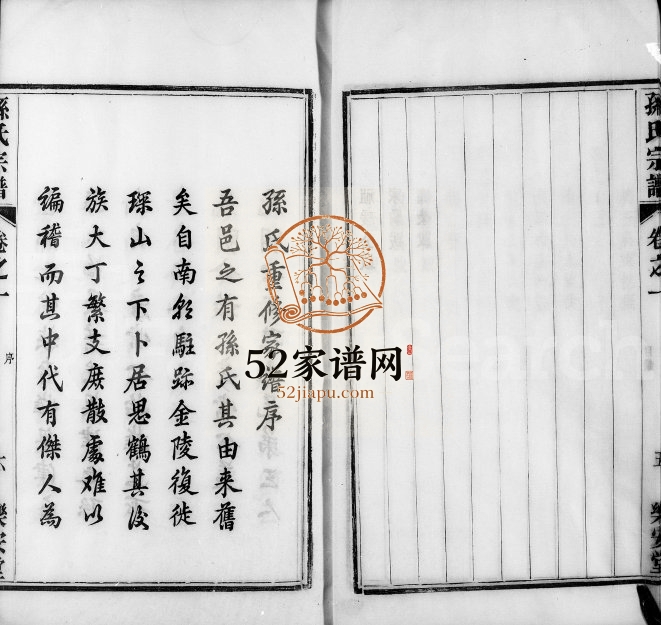 孫氏宗譜
卷之一
五
樂安堂
孫氏重修家譜序
吾邑之有孫氏其由來舊
矣自南𭅺駐跡金陵復徙
琛山之下卜居思鶴其後
族大丁繁支庶散處难以
编稽而其中代有傑人為
孫氏宗譜
卷之一
序
六
樂安堂
52家谱网
52jiapu.com